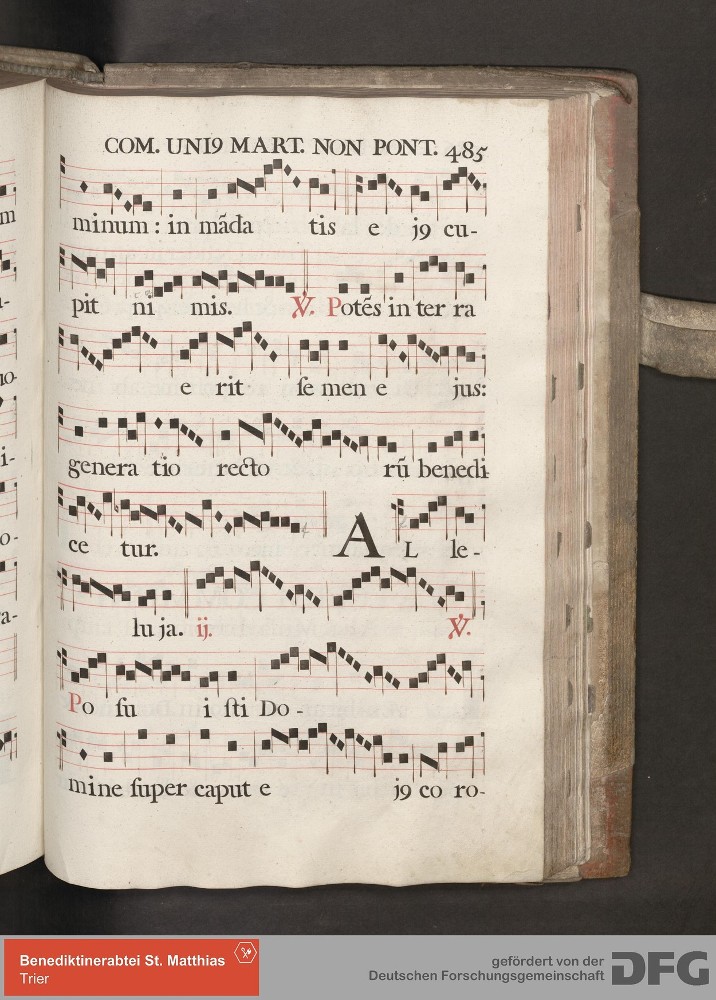 COM. UNI9 MART. NON PONT. 485
minum : in mãda tis e j9 cu-
pit ni mis. ℣. Potẽs in ter ra
e rit ſe men e jus:
genera tio recto rũ benedi
ce tur. AL le-
lu ja. ij. ℣.
Po ſu i ſti Do -
mine ſuper caput e j9 co ro-
m
a-
no-
i-
o-
a-
Benediktinerabtei St. Matthias
Trier
gefördert von der
Deutschen Forschungsgemeinschaft
DFG